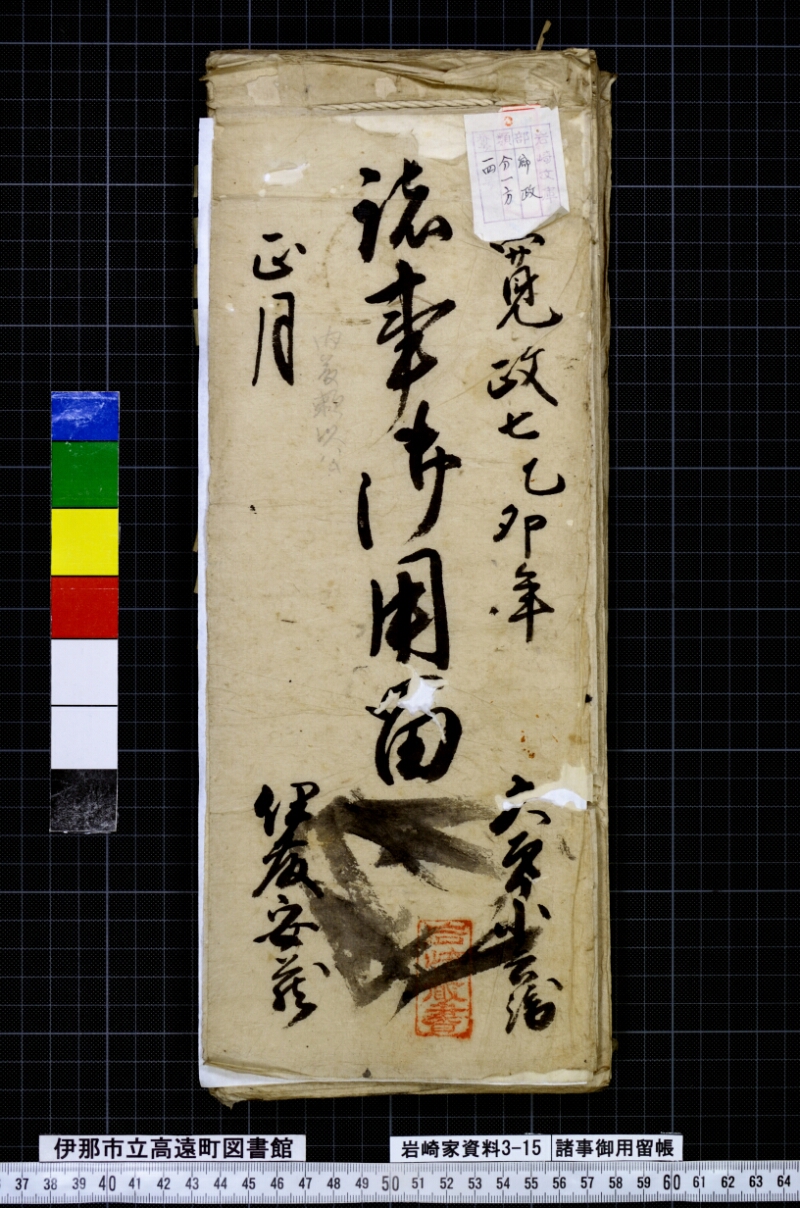 寛政七乙卯年
諸事御用留
正月
伊藤安蔵
岩崎蔵書
郷政
分一方
一四
伊那市立高遠町図書館
岩崎家資料3-15
諸事御用留帳
37 38 39 40 41 42 43 44 45 46 47 48 49 50 51 52 53 54 55 56 57 58 59 60 61 62 63 64